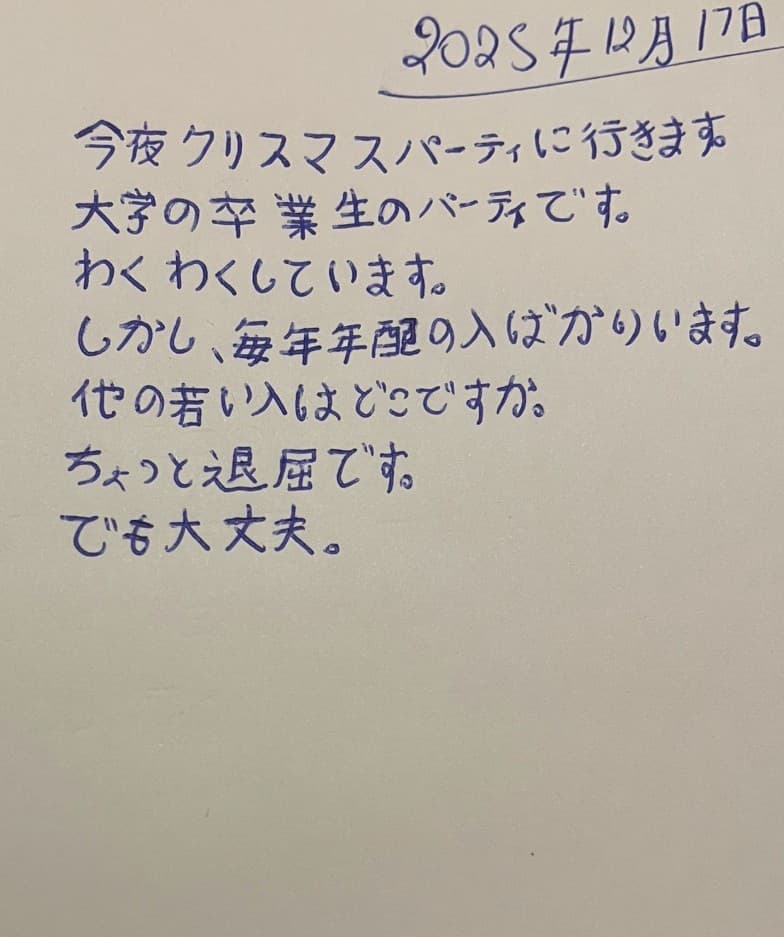 2025年12月17日
今夜クリスマスパーティに行きます。
大学の卒業生のパーティです。
わくわくしています。
しかし、毎年年配の入ばかりいます。
他の若い入はどこですか。
ちょっと退屈です。
でも大丈夫。